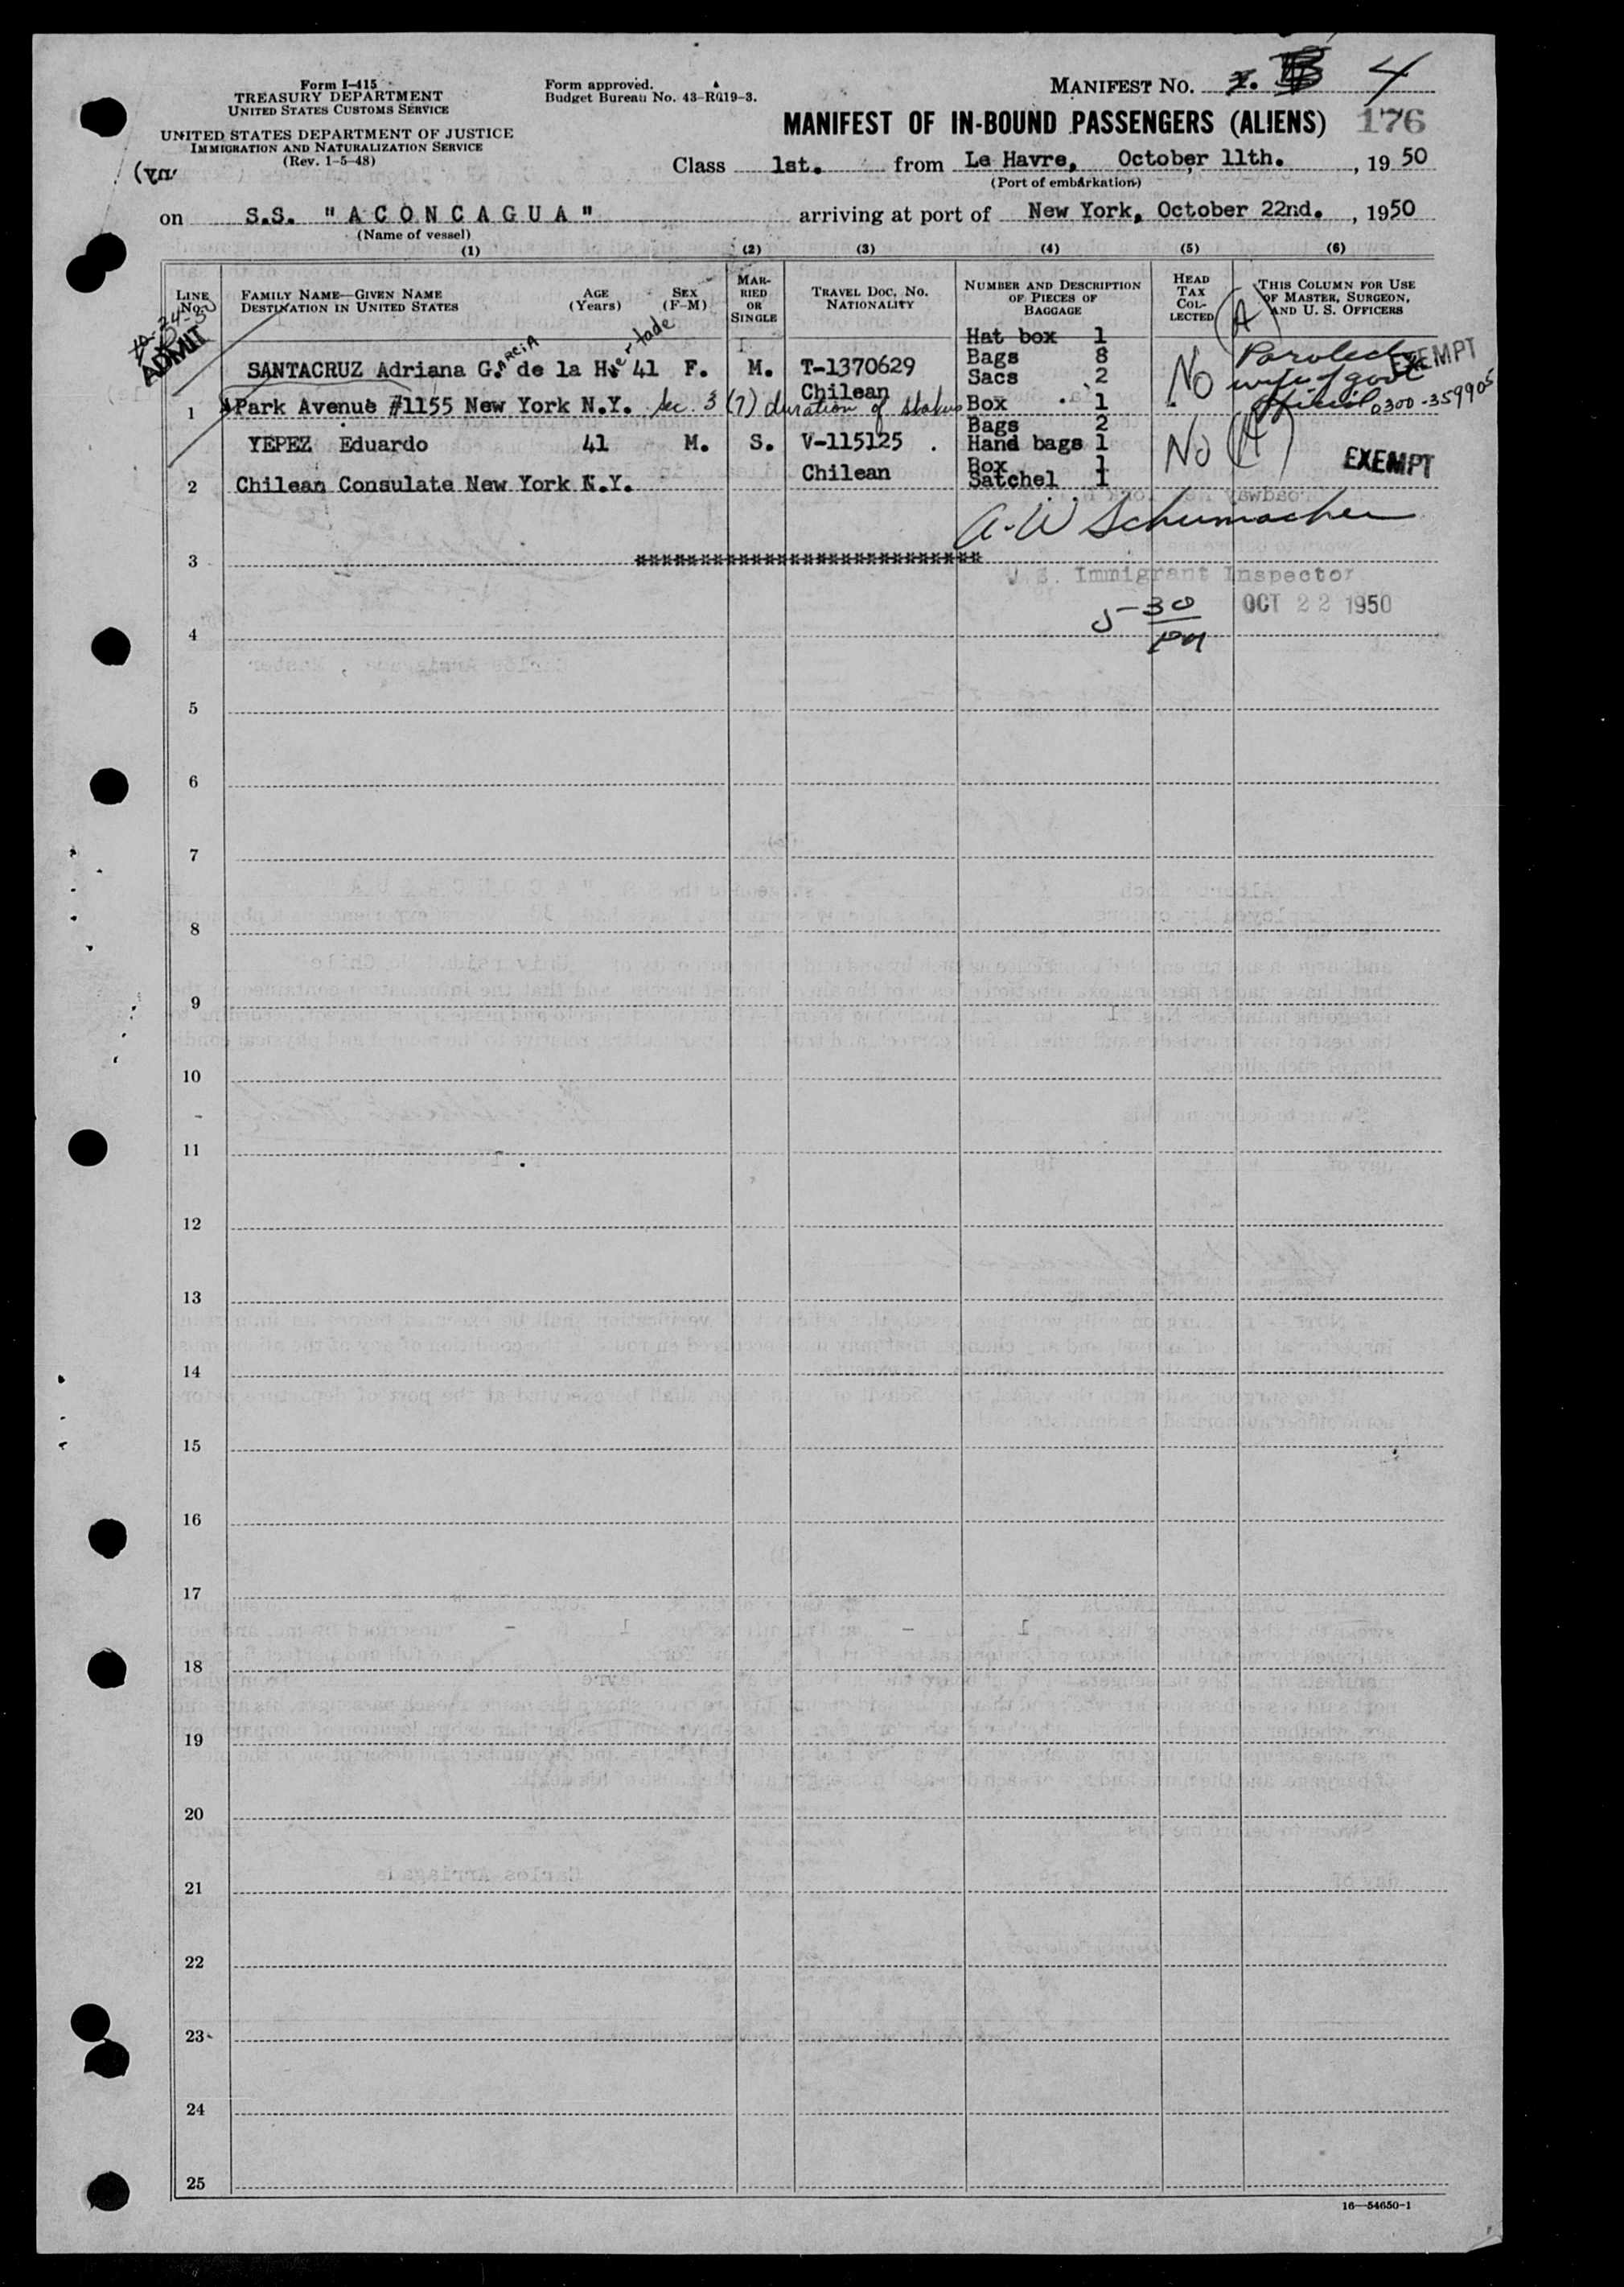 Form I-415
TREASURY DEPARTMENT
UNITED STATES CUSTOMS SERVICE
UNITED STATES DEPARTMENT OF JUSTICE
IMMIGRATION AND NATURALIZATION SERVICE
(Rev. 1-5-48)
Form approved.
Budget Bureau No. 43-R019-3.
MANIFEST NO. 4
MANIFEST OF IN-BOUND PASSENGERS (ALIENS) 176
Class 1st. from Le Havre, October 11th., 19 50
(Port of embarkation)
on S.S. "ACONCAGUA" arriving at port of New York, October 22nd., 1950
(Name of vessel)
(1) (2) (3) (4) (5) (6)
LINE No. FAMILY NAME—GIVEN NAME DESTINATION IN UNITED STATES AGE (Years) SEX (F-M) MARRIED OR SINGLE TRAVEL DOC. NO. NATIONALITY NUMBER AND DESCRIPTION OF PIECES OF BAGGAGE HEAD TAX COLLECTED THIS COLUMN FOR USE OF MASTER, SURGEON, AND U. S. OFFICERS
10-24-50
ADMIT
(A)
Hat box 1
SANTACRUZ Adriana G. de la H. 41 F. M. T-1370629 Bags 8
GARCIA
ertade
Chilean Sacs 2
No Paroled EXEMPT
wife of govt
official 0300-359905
1 Park Avenue #1155 New York N.Y. Sec. 3 (7) duration of status Box 1
Bags 2
YEPEZ Eduardo 41 M. S. V-115125 . Hand bags 1 No (A)
EXEMPT
Chilean Box 1
2 Chilean Consulate New York N.Y. Satchel 1
A. W Schumacher
3 ***************************
U.S. Immigrant Inspector
5-30 PM OCT 22 1950
4
5
6
7
8
9
10
11
12
13
14
15
16
17
18
19
20
21
22
23
24
25
16—54650-1